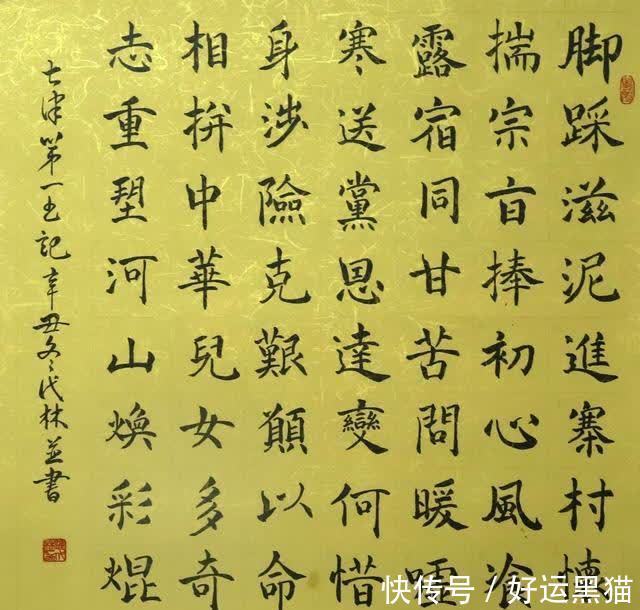 脚踩滋泥進寨村懷
揣宗旨捧初心風飡
露宿同甘苦問暖噓
寒送黨恩達變何惜
身涉險克艱願以命
相拚中華兒女多奇
志重塑河山焕彩焜
七律第一书記辛丑冬代林並書
快传号/好运黑猫